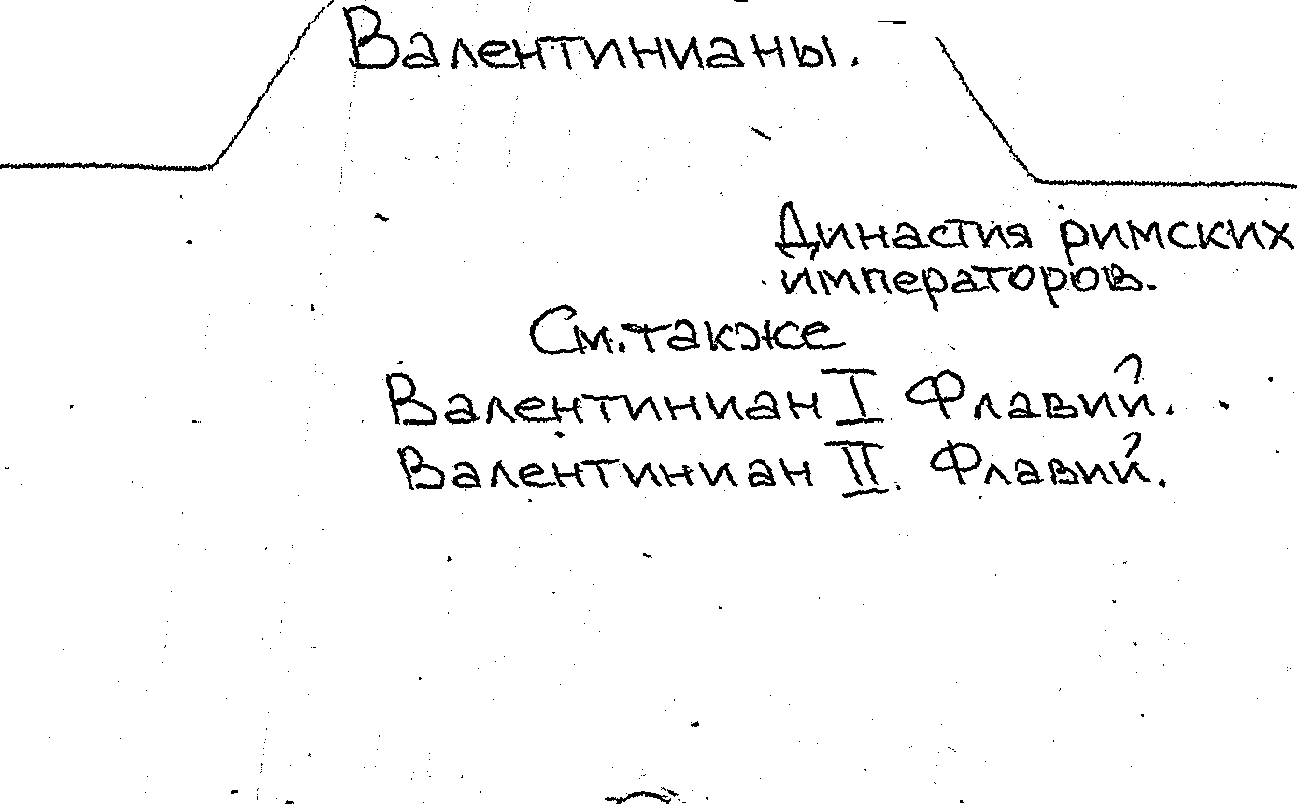 Валентинианы.
Династия римских
императоров.
См. также
Валентиниан I Флавий.
Валентиниан II. Флавий.